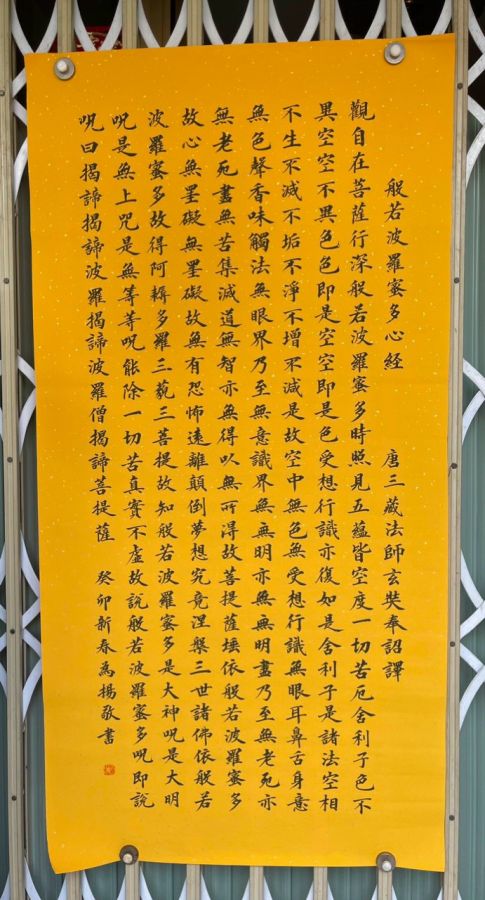 般若波羅蜜多心經 唐三藏法師玄奘奉詔譯
觀自在菩薩行深般若波羅蜜多時照見五蘊皆空度一切苦厄舍利子色不
異空空不異色色即是空空即是色受想行識亦復如是舍利子是諸法空相
不生不滅不垢不淨不增不減是故空中無色無受想行識無眼耳鼻舌身意
無色聲香味觸法無眼界乃至無意識界無無明亦無無明盡乃至無老死亦
無老死盡無苦集滅道無智亦無得以無所得故菩提薩埵依般若波羅蜜多
故心無罣礙無罣礙故無有恐怖遠離顛倒夢想究竟涅槃三世諸佛依般若
波羅蜜多故得阿耨多羅三藐三菩提故知般若波羅蜜多是大神呪是大明
呪是無上咒是無等等呪能除一切苦真實不虛故說般若波羅蜜多呪即說
呪曰揭諦揭諦波羅揭諦波羅僧揭諦菩提薩 癸卯新春為揚敬書